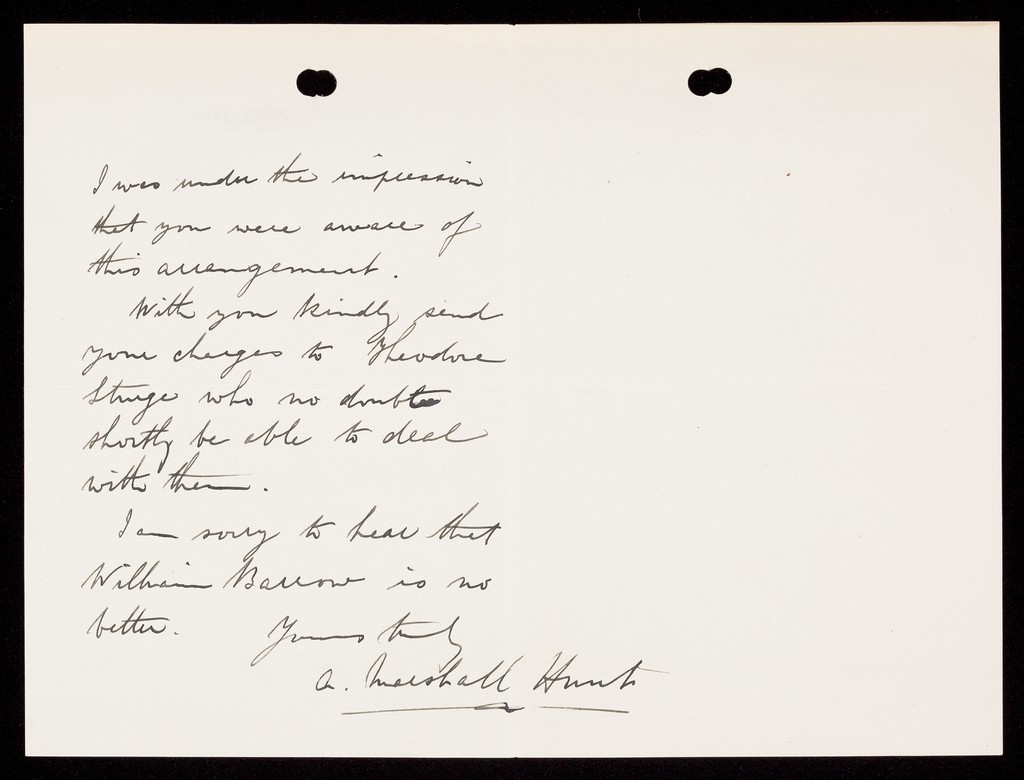 I was under the impression
that you were aware of
this arrangement.
With you kindly send
your charges to Theodore
Sturge who no doubt
shortly be able to deal
with them.
I am sorry to hear that
William Barrow is no
better. Yours truly
A. Marshall Hunt